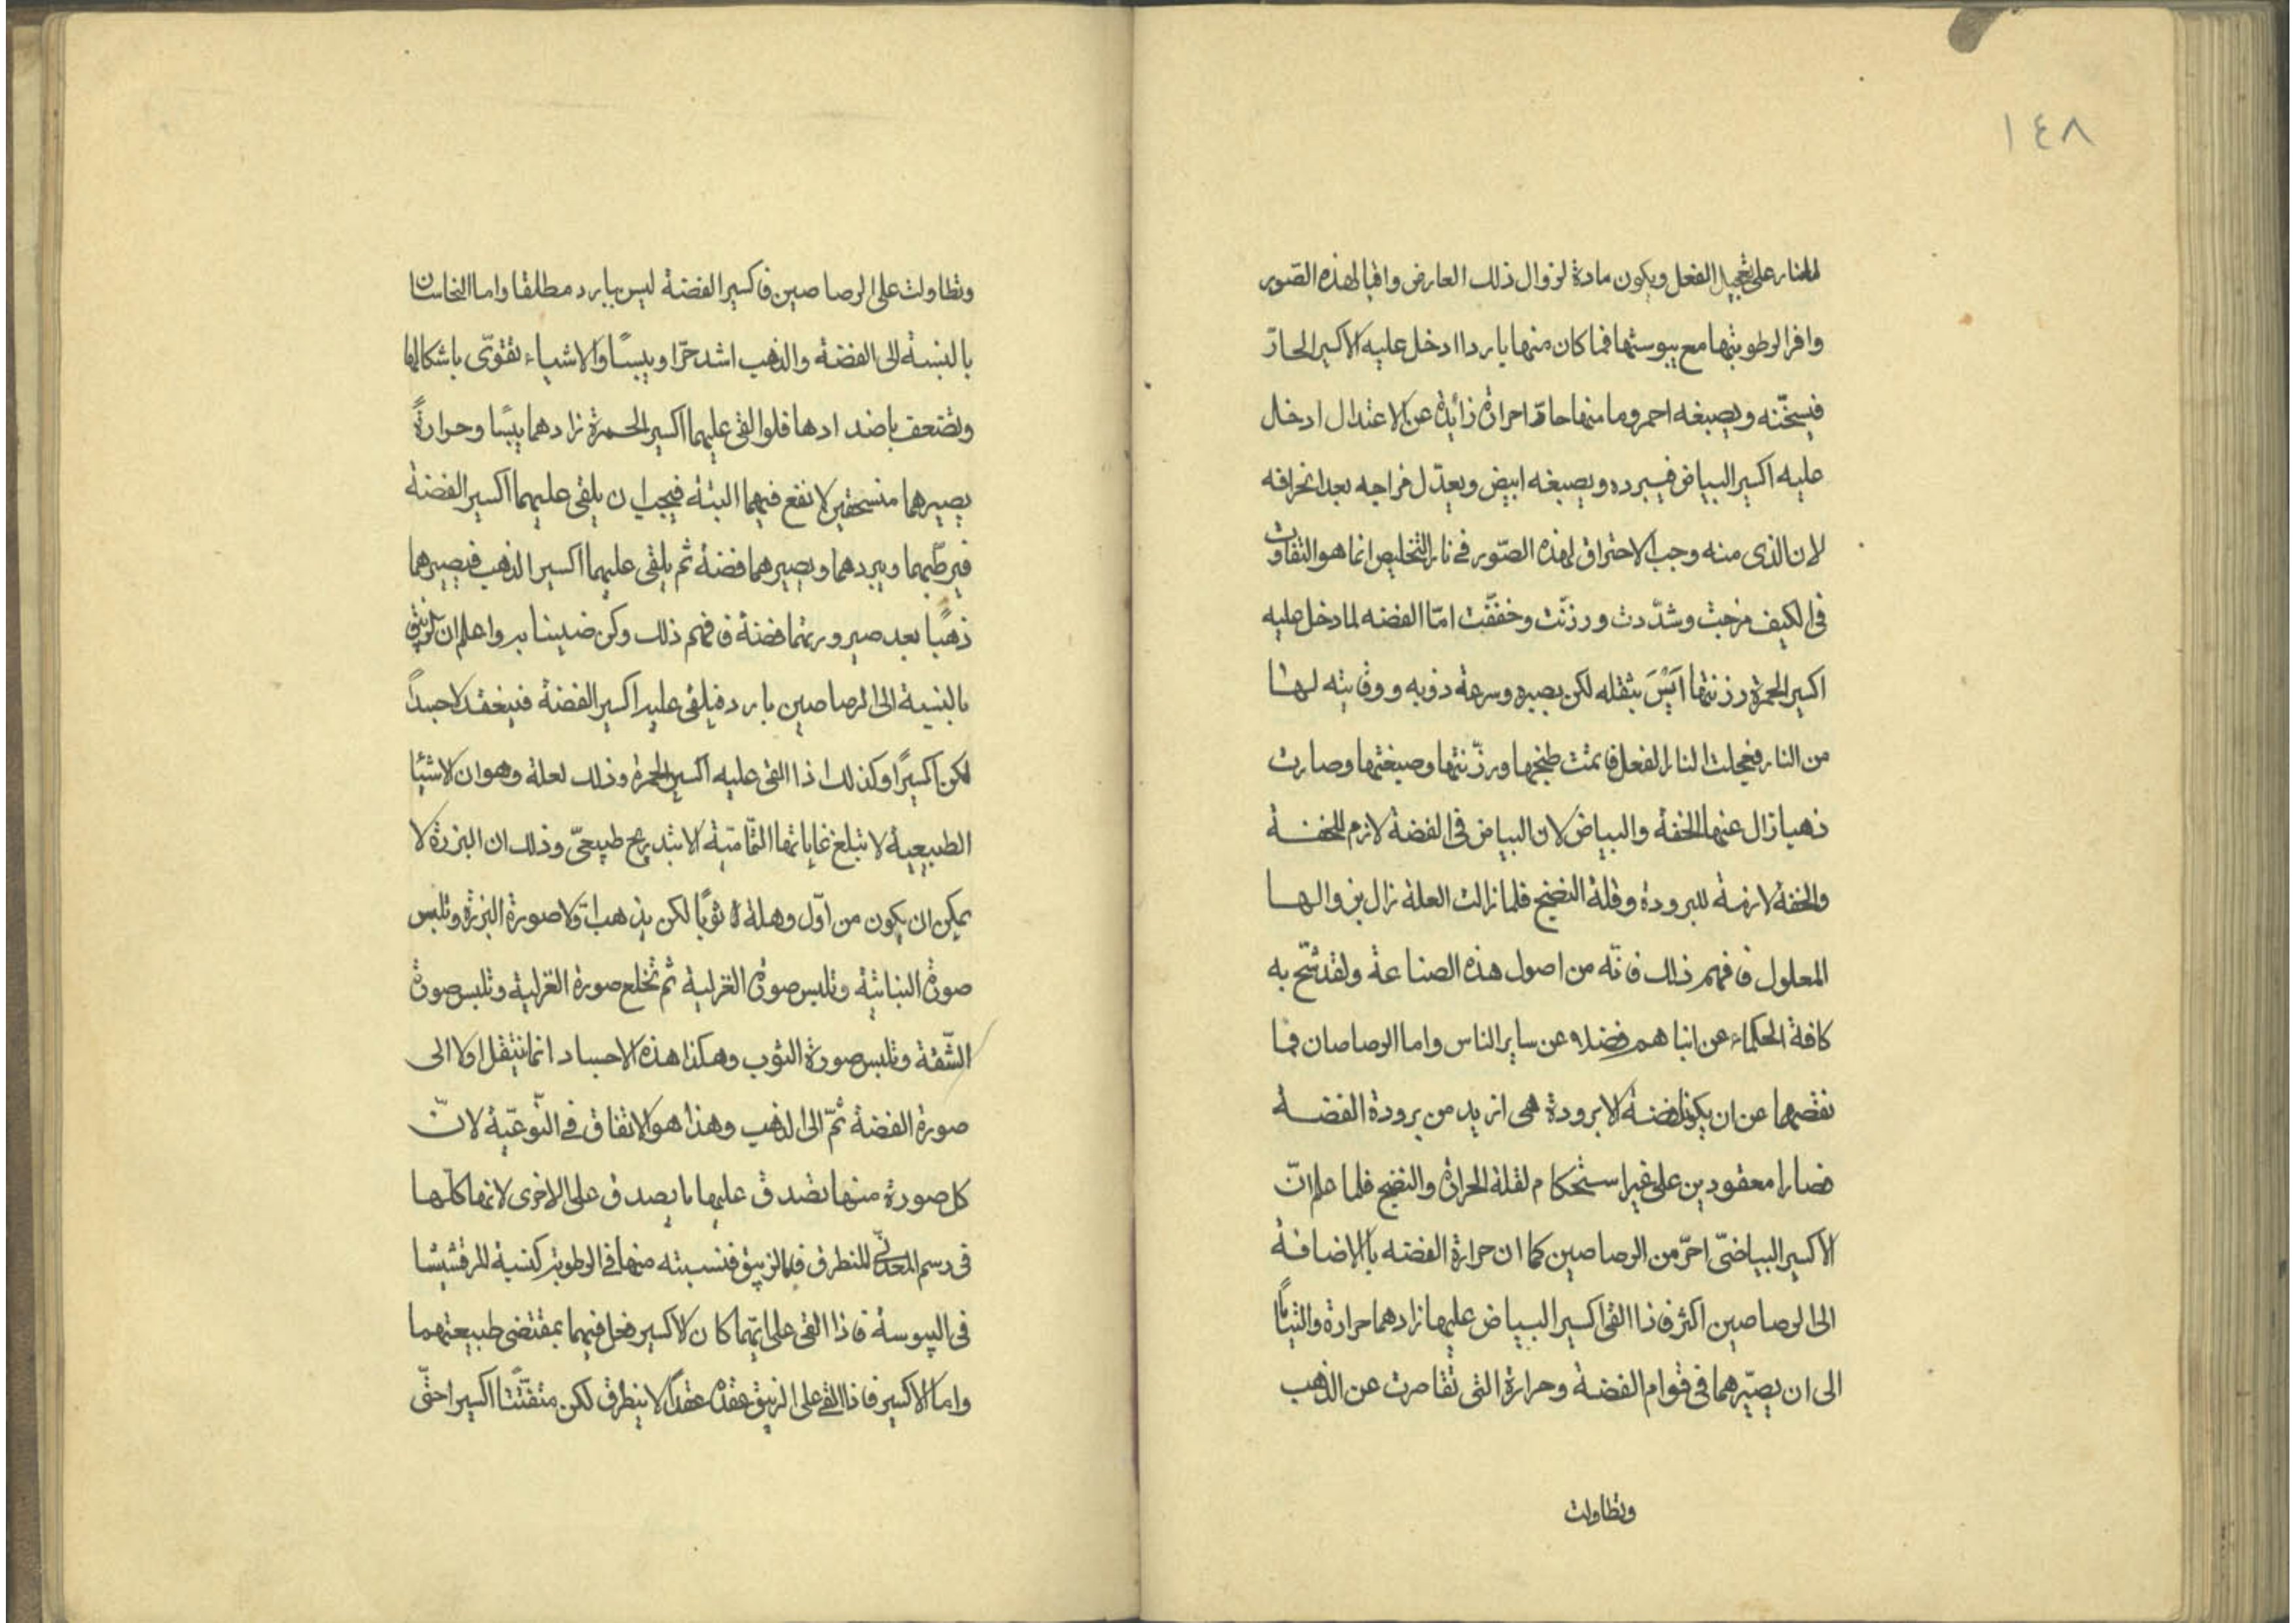 ١٤٨
للنار على تعجيل الفعل ويكون مادة لزوال ذلك العارض واقيا لهذه الصّور
وافرا لرطوبتها مع يبوستها فما كان منها باردا ادخل عليه الاكسير الحارّ
فيسخّنه ويصبغه احمر وما منها حارّا حرارة زائدة عن الاعتدال ادخال
عليه اكسير البياض فيبرده ويصبغه ابيض ويعدّل مزاجه بعد انحرافه
لان الذى منه وجب الاحتراق لهذه الصّور فى نار التخليص انما هو التفاوت
فى الكيف مزجت وشدّدت ورزنت وخفّفت امّا الفضه لما دخل عليه
اكسير الحمرة رزنتها ليْسَ بثقله لكن بصبره وسرعة ذوبه ووقايته لها
من النار فعجلت النار الفعل فاتمت طبخها ورزّنتها وصبغتها وصارت
ذهبا زال عنها الخفة والبياض لان البياض فى الفضة لازم للخفة
والخفة لازمة للبرودة وقلة النضج فلما زالت العلة زال بزوالها
المعلول فافهم ذلك فانّه من اصول هذه الصناعة ولقد شحّ به
كافة الحكماء عن ابناهم فضلا عن ساير الناس واما الرصاصان فما
نقصهما عن ان يكونا فضة الا برودة هى ازيد من برودة الفضة
فصارا معقودين على غير استحكام لقلة الحرارة والنضج فلما علم انّ
الاكسير البياضىّ احرّ من الرصاصين كما ان حرارة الفضه بالاضافة
الى الرصاصين اكثر فاذا القى اكسير البياض عليها زادهما حرارة والتياًا
الى ان يصيّرهما فى قوام الفضة وحرارة التى تقاصرت عن الذهب
وتطاولت
وتطاولت على الرصاصين فاكسير الفضة ليس ببارد مطلقا واما النحاسان
بالنسبة الى الفضة والذهب اشد حرّا ويبسًا والاشياء تقوّى باشكالها
وتضعف باضدادها فلو القى عليهما اكسير الحمرة زادهما يبسًا وحرارةً
يصيرهما منسحقين لا نفع فيهما البتة فيجب ان يلقى عليهما اكسير الفضة
فيرطّبهما ويبردهما ويصيرهما فضة ثم يلقى عليهما اكسير الذهب فيصيرهما
ذهبًا بعد صيرورتهما فضة فافهم ذلك وكن ضنينا به واعلم ان الزيبق
بالنسبة الى الرصاصين بارد فيلقى عليه اكسير الفضة فينعقد لا جسداً
لكن اكسيرًا وكذلك اذا القى عليه اكسير الحمرة وذلك لعلة وهو ان الاشيا
الطبيعية لا تبلغ غاياتها التّمامّية الا بتدريج طبيعىّ وذلك ان البزرة لا
يمكن ان يكون من اوّل وهلة ثوبًا لكن يذهب اولا صورة البزرة وتلبس
صورة النباتية وتلبس صورة الغزلية ثم تخلع صورة الغزلية وتلبس صورة
الشّقة وتلبس صورة الثوب وهكذا هذه الاجساد انما تنتقل اولا الى
صورة الفضة ثمّ الى الذهب وهذا هو الاتفاق فى النّوعيّة لانّ
كل صورة منها تصدق عليها ما يصدق على الاخرى لانها كلّها
فى رسم المعدنىّ للتطرق فاما الزيبق فنسبته منها فى الرطوبة كنسبة المرقشيشا
فى اليبوسة فاذا القى على ايّهما كان الاكسير فعل فيهما بمقتضى طبيعتهما
واما الاكسير فاذا القى على الزيبق عقده عقداً لا ينطرق لكن متفتّتا اكسيرا حتّى